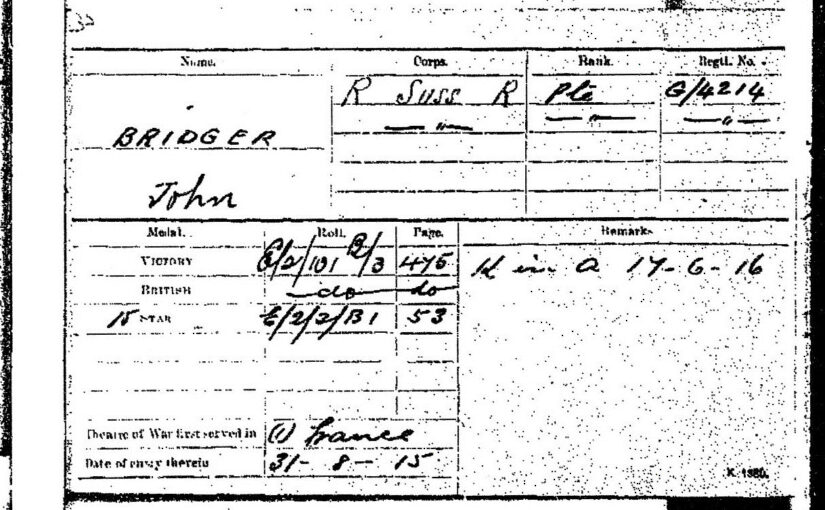 Name. Corps. Rank. Regtl. No.
R Suss R Pte G/4214
— " — — " — — " —
BRIDGER
John
Medal. Roll. Page. Remarks
VICTORY /2/101 B/3 475 K in A 17-6-16
BRITISH — do — do
15 STAR E/2/2/B1 53
Theatre of War first served in (1) France
Date of entry therein 31-8-15
K. 1380.